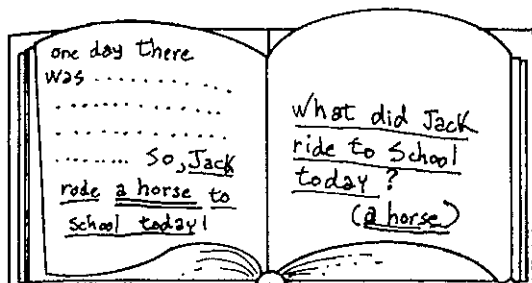 one day there
was ..........
..............
..............
......... So, Jack
rode a horse to
school today!
What did Jack
ride to School
today ?
(a horse)